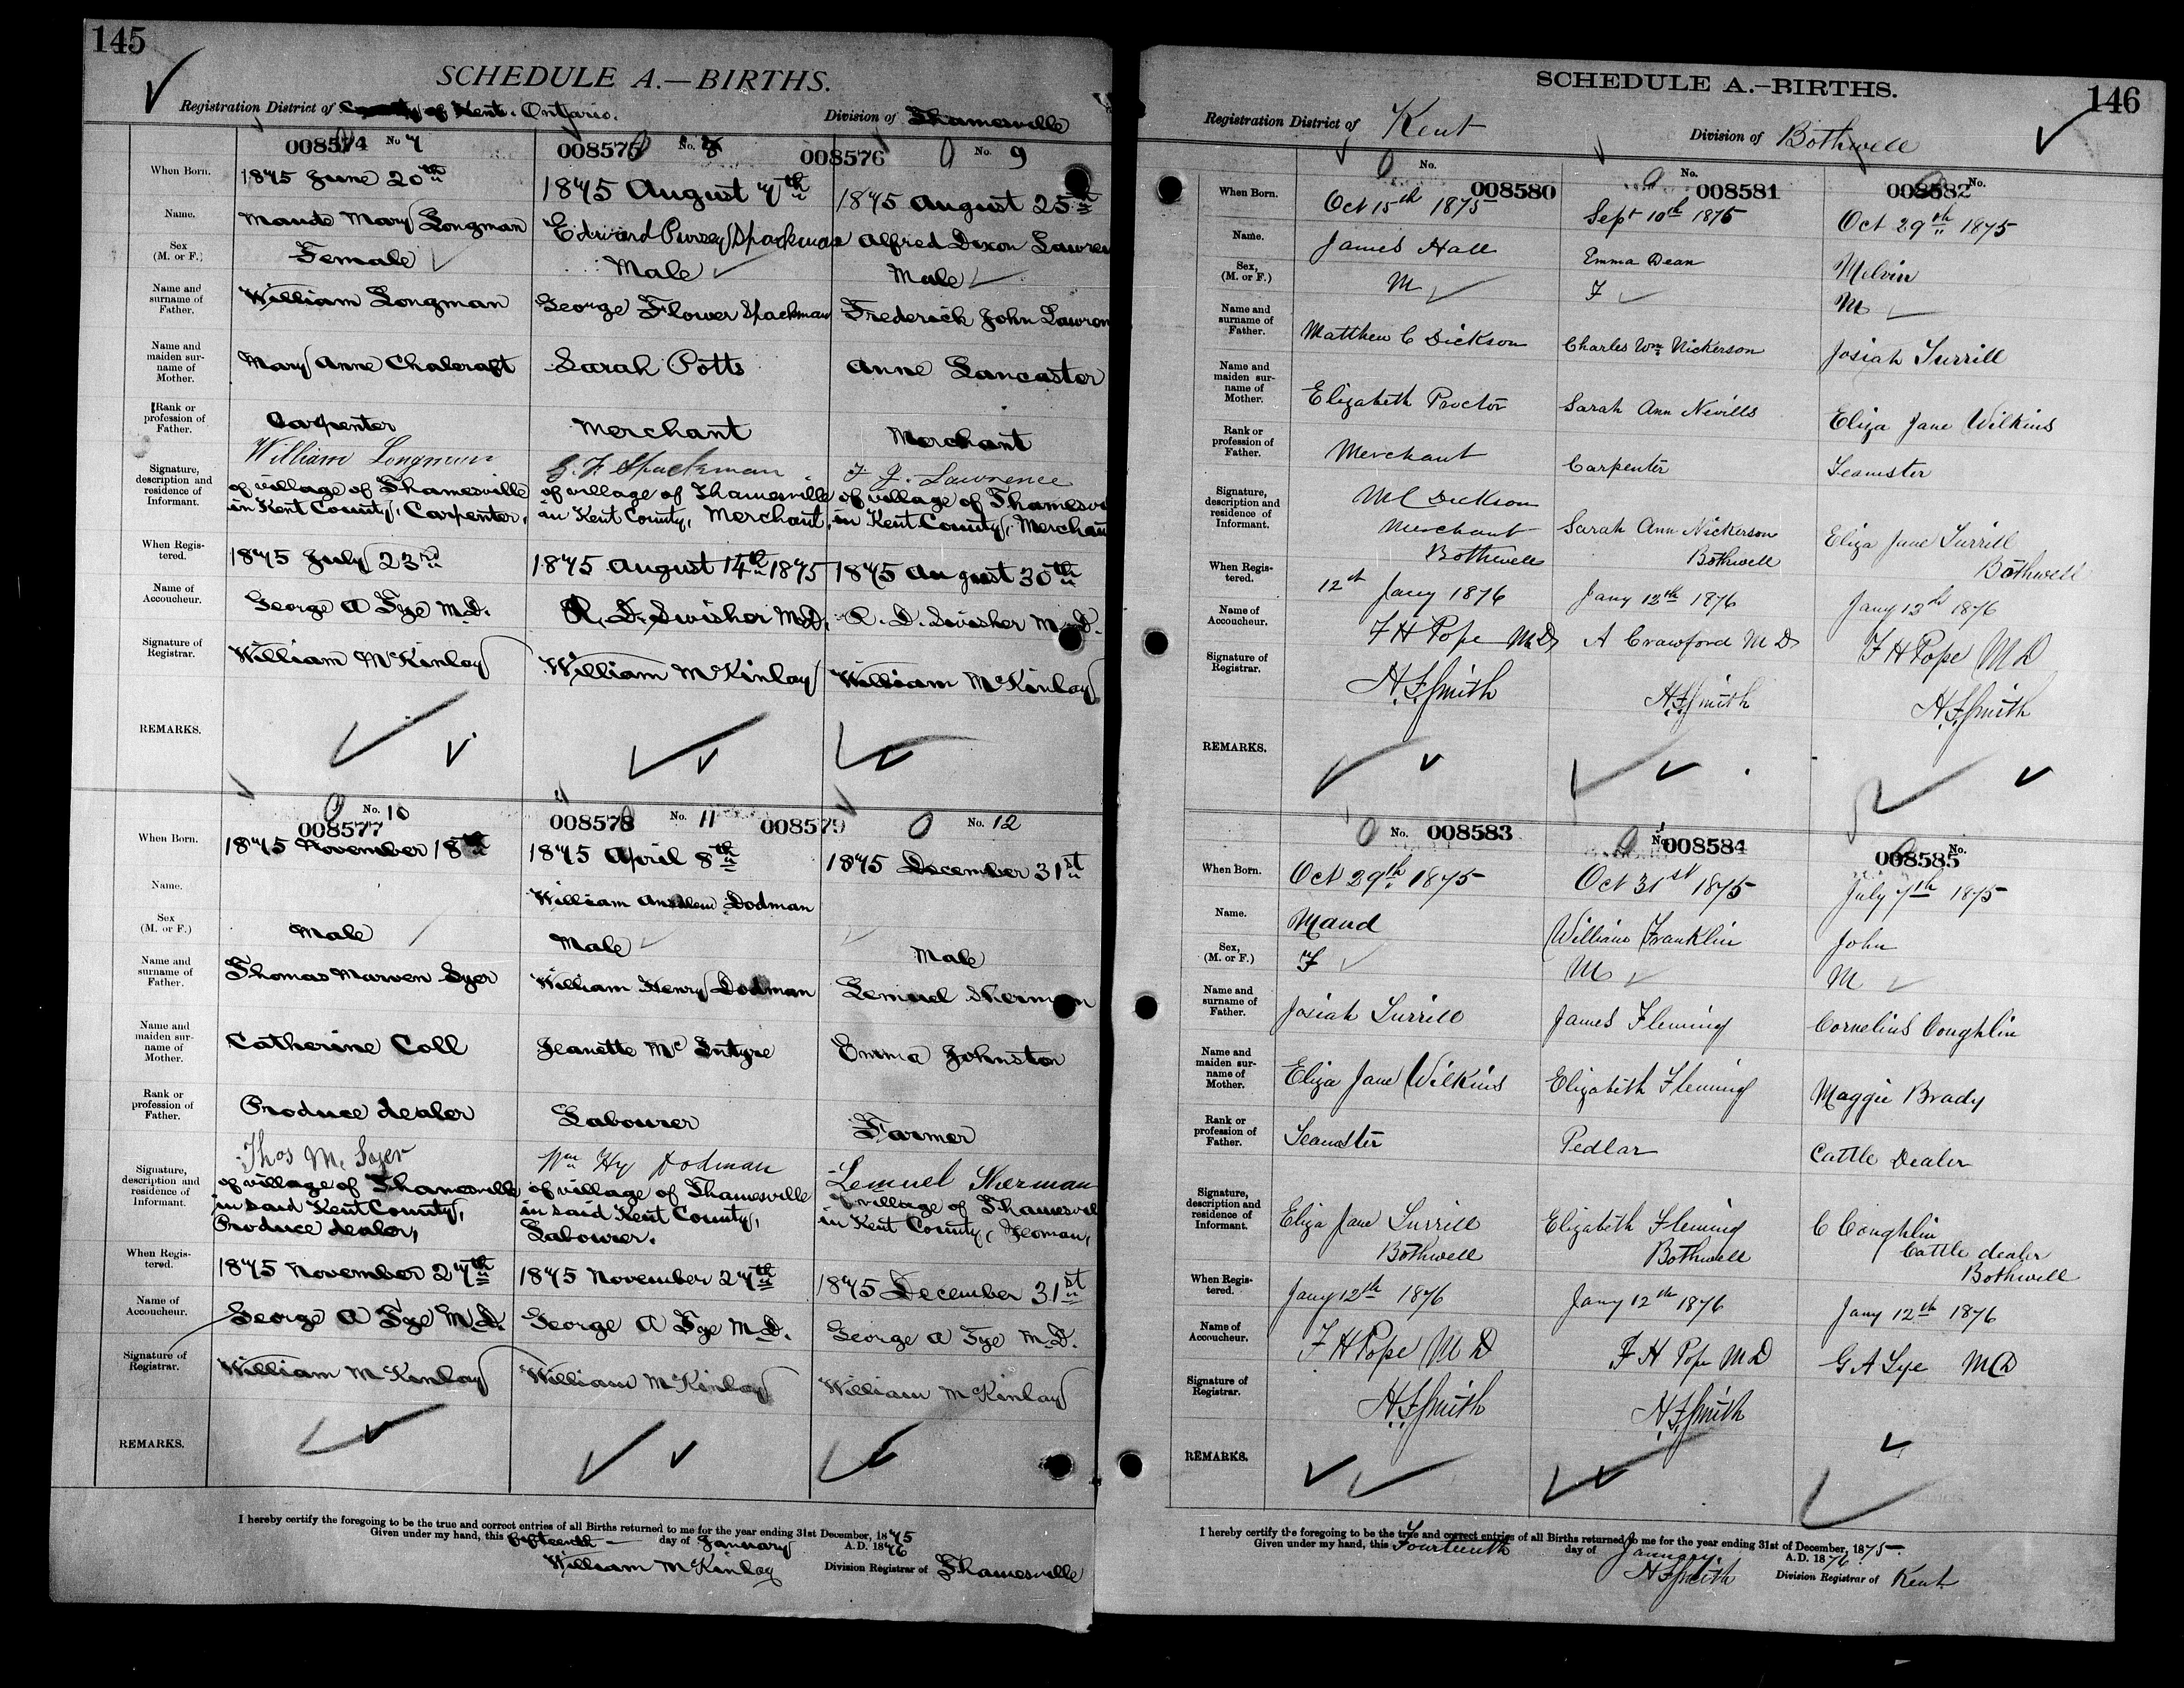 145
SCHEDULE A.—BIRTHS.
Registration District of County of Kent. Ontario.
Division of Thamesville
008574 No 7
008575 No. 8
008576 No. 9
When Born.
1875 June 20th
1875 August 7th
1875 August 25th
Name.
Maude Mary Longman
Edward Pursey Spackman
Alfred Dixon Lawren
Sex
(M. or F.)
Female
Male
Male
Name and
surname of
Father.
William Longman
George Flower Spackman
Frederick John Lawren
Name and
maiden sur-
name of
Mother.
Mary Anne Chalcraft
Sarah Potts
Anne Lancaster
Rank or
profession of
Father.
Carpenter
Merchant
Merchant
Signature,
description and
residence of
Informant.
William Longman
of village of Thamesville
in Kent County, Carpenter,
G. F. Spackman
of village of Thamesville
in Kent County, Merchant,
F. J. Lawrence
of village of Thamesv
in Kent County, Merchan
When Regis-
tered.
1875 July 23rd
1875 August 14th 1875
1875 August 30th
Name of
Accoucheur.
George A Tye M.D.
R. D. Swisher M.D.
R. D. Swisher M.D.
Signature of
Registrar.
William McKinlay
William McKinlay
William McKinlay
REMARKS.
008577 No. 10
008578 No. 11
008579 No. 12
When Born.
1875 November 18th
1875 April 8th
1875 December 31st
Name.
William Andrew Dodman
Sex
(M. or F.)
Male
Male
Male
Name and
surname of
Father.
Thomas Marven Syer
William Henry Dodman
Lemuel Sherman
Name and
maiden sur-
name of
Mother.
Catherine Coll
Jeanette McIntyre
Emma Johnston
Rank or
profession of
Father.
Produce dealer
Labourer
Farmer
Signature,
description and
residence of
Informant.
Thos M. Syer
of village of Thamesville
in said Kent County,
Produce dealer,
Wm Hy Dodman
of village of Thamesville
in said Kent County,
Labourer.
Lemuel Sherman
of village of Thamesvil
in Kent County, Yeoman,
When Regis-
tered.
1875 November 27th
1875 November 27th
1875 December 31st
Name of
Accoucheur.
George A Tye M.D.
George A Tye M.D.
George A Tye M.D.
Signature of
Registrar.
William McKinlay
William McKinlay
William McKinlay
REMARKS.
I hereby certify the foregoing to be the true and correct entries of all Births returned to me for the year ending 31st December, 1875
Given under my hand, this fifteenth day of January A.D. 1876
William McKinlay Division Registrar of Thamesville
SCHEDULE A.—BIRTHS.
146
Registration District of Kent
Division of Bothwell
No. 008580
No. 008581
008582 No.
When Born.
Oct 15th 1875
Sept 10th 1875
Oct 29th 1875
Name.
James Hall
Emma Dean
Melvin
Sex,
(M. or F.)
M
F
M
Name and
surname of
Father.
Matthew C Dickson
Charles Wm Nickerson
Josiah Turrill
Name and
maiden sur-
name of
Mother.
Elizabeth Proctor
Sarah Ann Nevills
Eliza Jane Wilkins
Rank or
profession of
Father.
Merchant
Carpenter
Teamster
Signature,
description and
residence of
Informant.
M C Dickson
Merchant
Bothwell
Sarah Ann Nickerson
Bothwell
Eliza Jane Turrill
Bothwell
When Regis-
tered.
12th Jany 1876
Jany 12th 1876
Jany 13th 1876
Name of
Accoucheur.
F H Pope M.D
A Crawford M D
F H Pope M D
Signature of
Registrar.
H. F. Smith
H. F. Smith
H. F. Smith
REMARKS.
No. 008583
No. 008584
008585 No.
When Born.
Oct 29th 1875
Oct 31st 1875
July 7th 1875
Name.
Maud
William Franklin
John
Sex,
(M. or F.)
F
M
M
Name and
surname of
Father.
Josiah Turrill
James Fleming
Cornelius Coughlin
Name and
maiden sur-
name of
Mother.
Eliza Jane Wilkins
Elizabeth Fleming
Maggie Brady
Rank or
profession of
Father.
Teamster
Pedlar
Cattle Dealer
Signature,
description and
residence of
Informant.
Eliza Jane Turrill
Bothwell
Elizabeth Fleming
Bothwell
C Coughlin
Cattle dealer
Bothwell
When Regis-
tered.
Jany 12th 1876
Jany 12th 1876
Jany 12th 1876
Name of
Accoucheur.
F H Pope M D
F H Pope M D
G A Tye M D
Signature of
Registrar.
H. F. Smith
H. F. Smith
REMARKS.
I hereby certify the foregoing to be the true and correct entries of all Births returned to me for the year ending 31st of December, 1875.
Given under my hand, this Fourteenth day of January A.D. 1876.
H F Smith Division Registrar of Kent